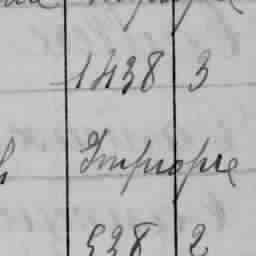 1438 3
Impropre
538 2